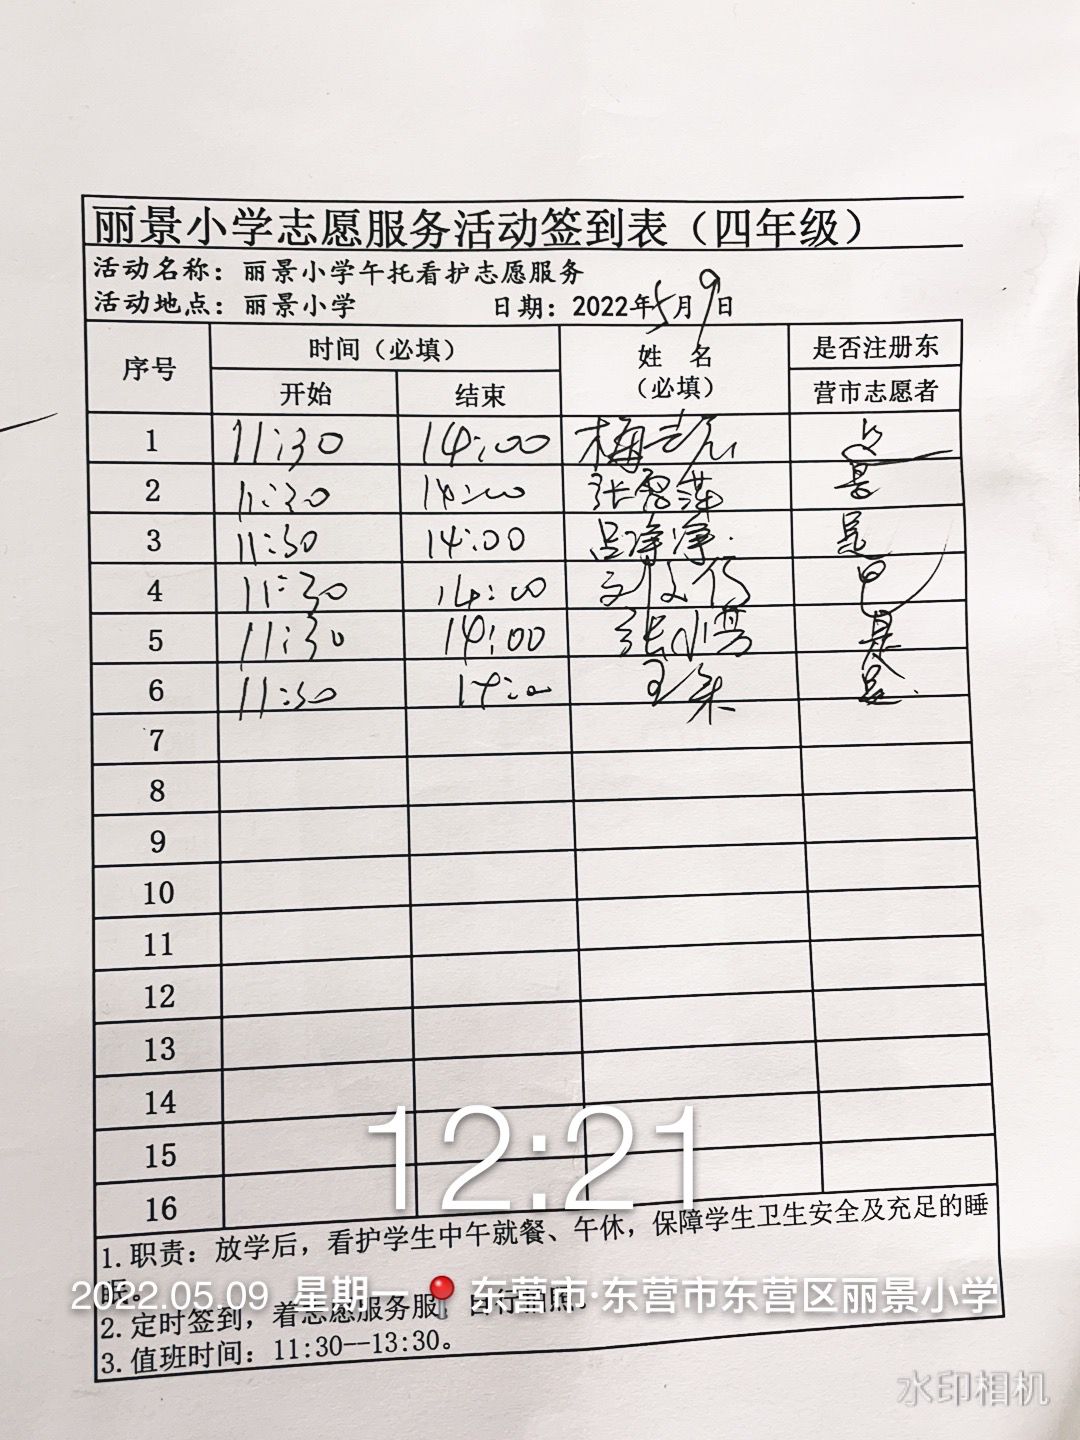 丽景小学志愿服务活动签到表（四年级）
活动名称：丽景小学午托看护志愿服务
活动地点：丽景小学 日期：2022年5月9日
序号 时间（必填） 姓 名（必填） 是否注册东营市志愿者
开始 结束
1 11:30 14:00 梅 是
2 11:30 14:00 张雪萍 是
3 11:30 14:00 吕净净 是
4 11:30 14:00 刘文 是
5 11:30 14:00 张小雪 是
6 11:30 14:00 王朱 是
7
8
9
10
11
12
13
14
15
16
12:21
1.职责：放学后，看护学生中午就餐、午休，保障学生卫生安全及充足的睡
眠。
2022.05.09 星期一 东营市·东营市东营区丽景小学
2.定时签到，着志愿服务服
3.值班时间：11:30--13:30。
水印相机